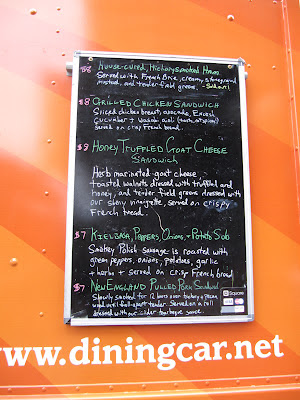 $8 House-cured, Hickory smoked Ham
Served with French Brie, creamy, stoneground
mustard, and tender field greens.
$8 GRILLED CHICKEN SANDWICH
Sliced chicken breast, avocado, English
cucumber + Wasabi aioli
served on crisp French bread.
$9 Honey Truffled Goat Cheese
Sandwich
Herb marinated goat cheese,
toasted walnuts dressed with truffled
honey, and tender field greens dressed with
our sherry vinaigrette, served on crispy
French bread.
$7 Kielbasa, Peppers, Onions, + Potato Sub
Smokey Polish sausage is roasted with
green peppers, onions, potatoes, garlic
+ herbs + served on crisp French bread
$7 New England Pulled Pork Sandwich
Slowly smoked for 12 hours over hickory + pecan
wood until fall-apart-tender. Served on a roll
dressed with our cider barbeque sauce.
Square
www.diningcar.net